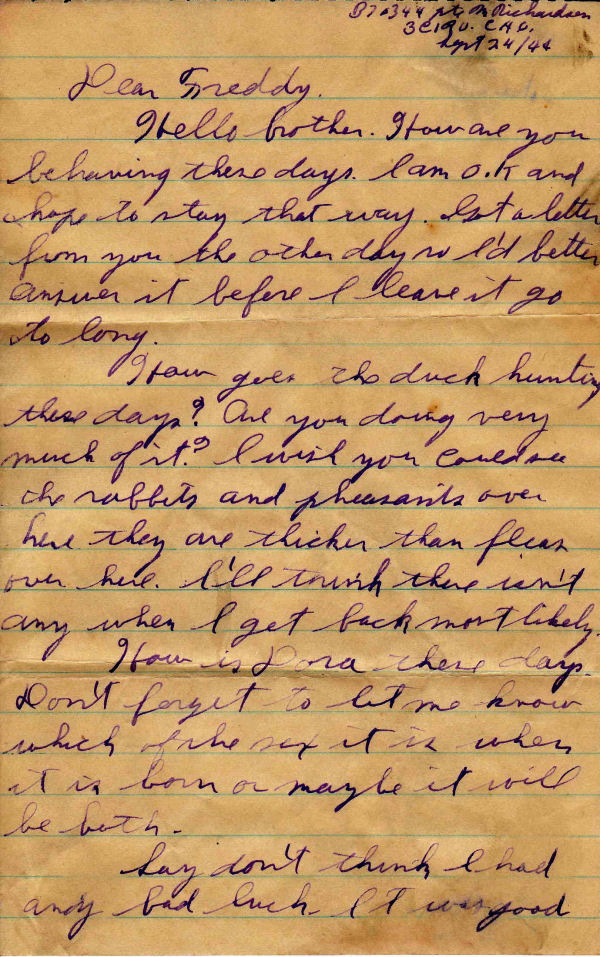 Pte M Richardson
3 C.I.R.U. C.A.O.
Sept 24/44
Dear Freddy.
Hello brother. How are you
behaving these days. I am O.K and
hope to stay that way. Got a letter
from you the other day so I'd better
answer it before I leave it go
to long.
How goes the duck hunting
these days? Are you doing very
much of it? I wish you could see
the rabbits and pheasants over
here they are thicker than fleas
over here. I'll think there isn't
any when I get back most likely.
How is Dora these days.
Don't forget to let me know
which of the sex it is when
it is born or maybe it will
be both.
Say don't think I had
any bad luck. It was good